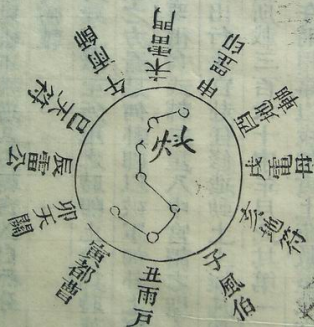 子風伯
丑雨戶
寅都曹
卯天關
辰雷公
巳天符
午雨師
未雷門
申印
酉地軸
戌電母
亥地符